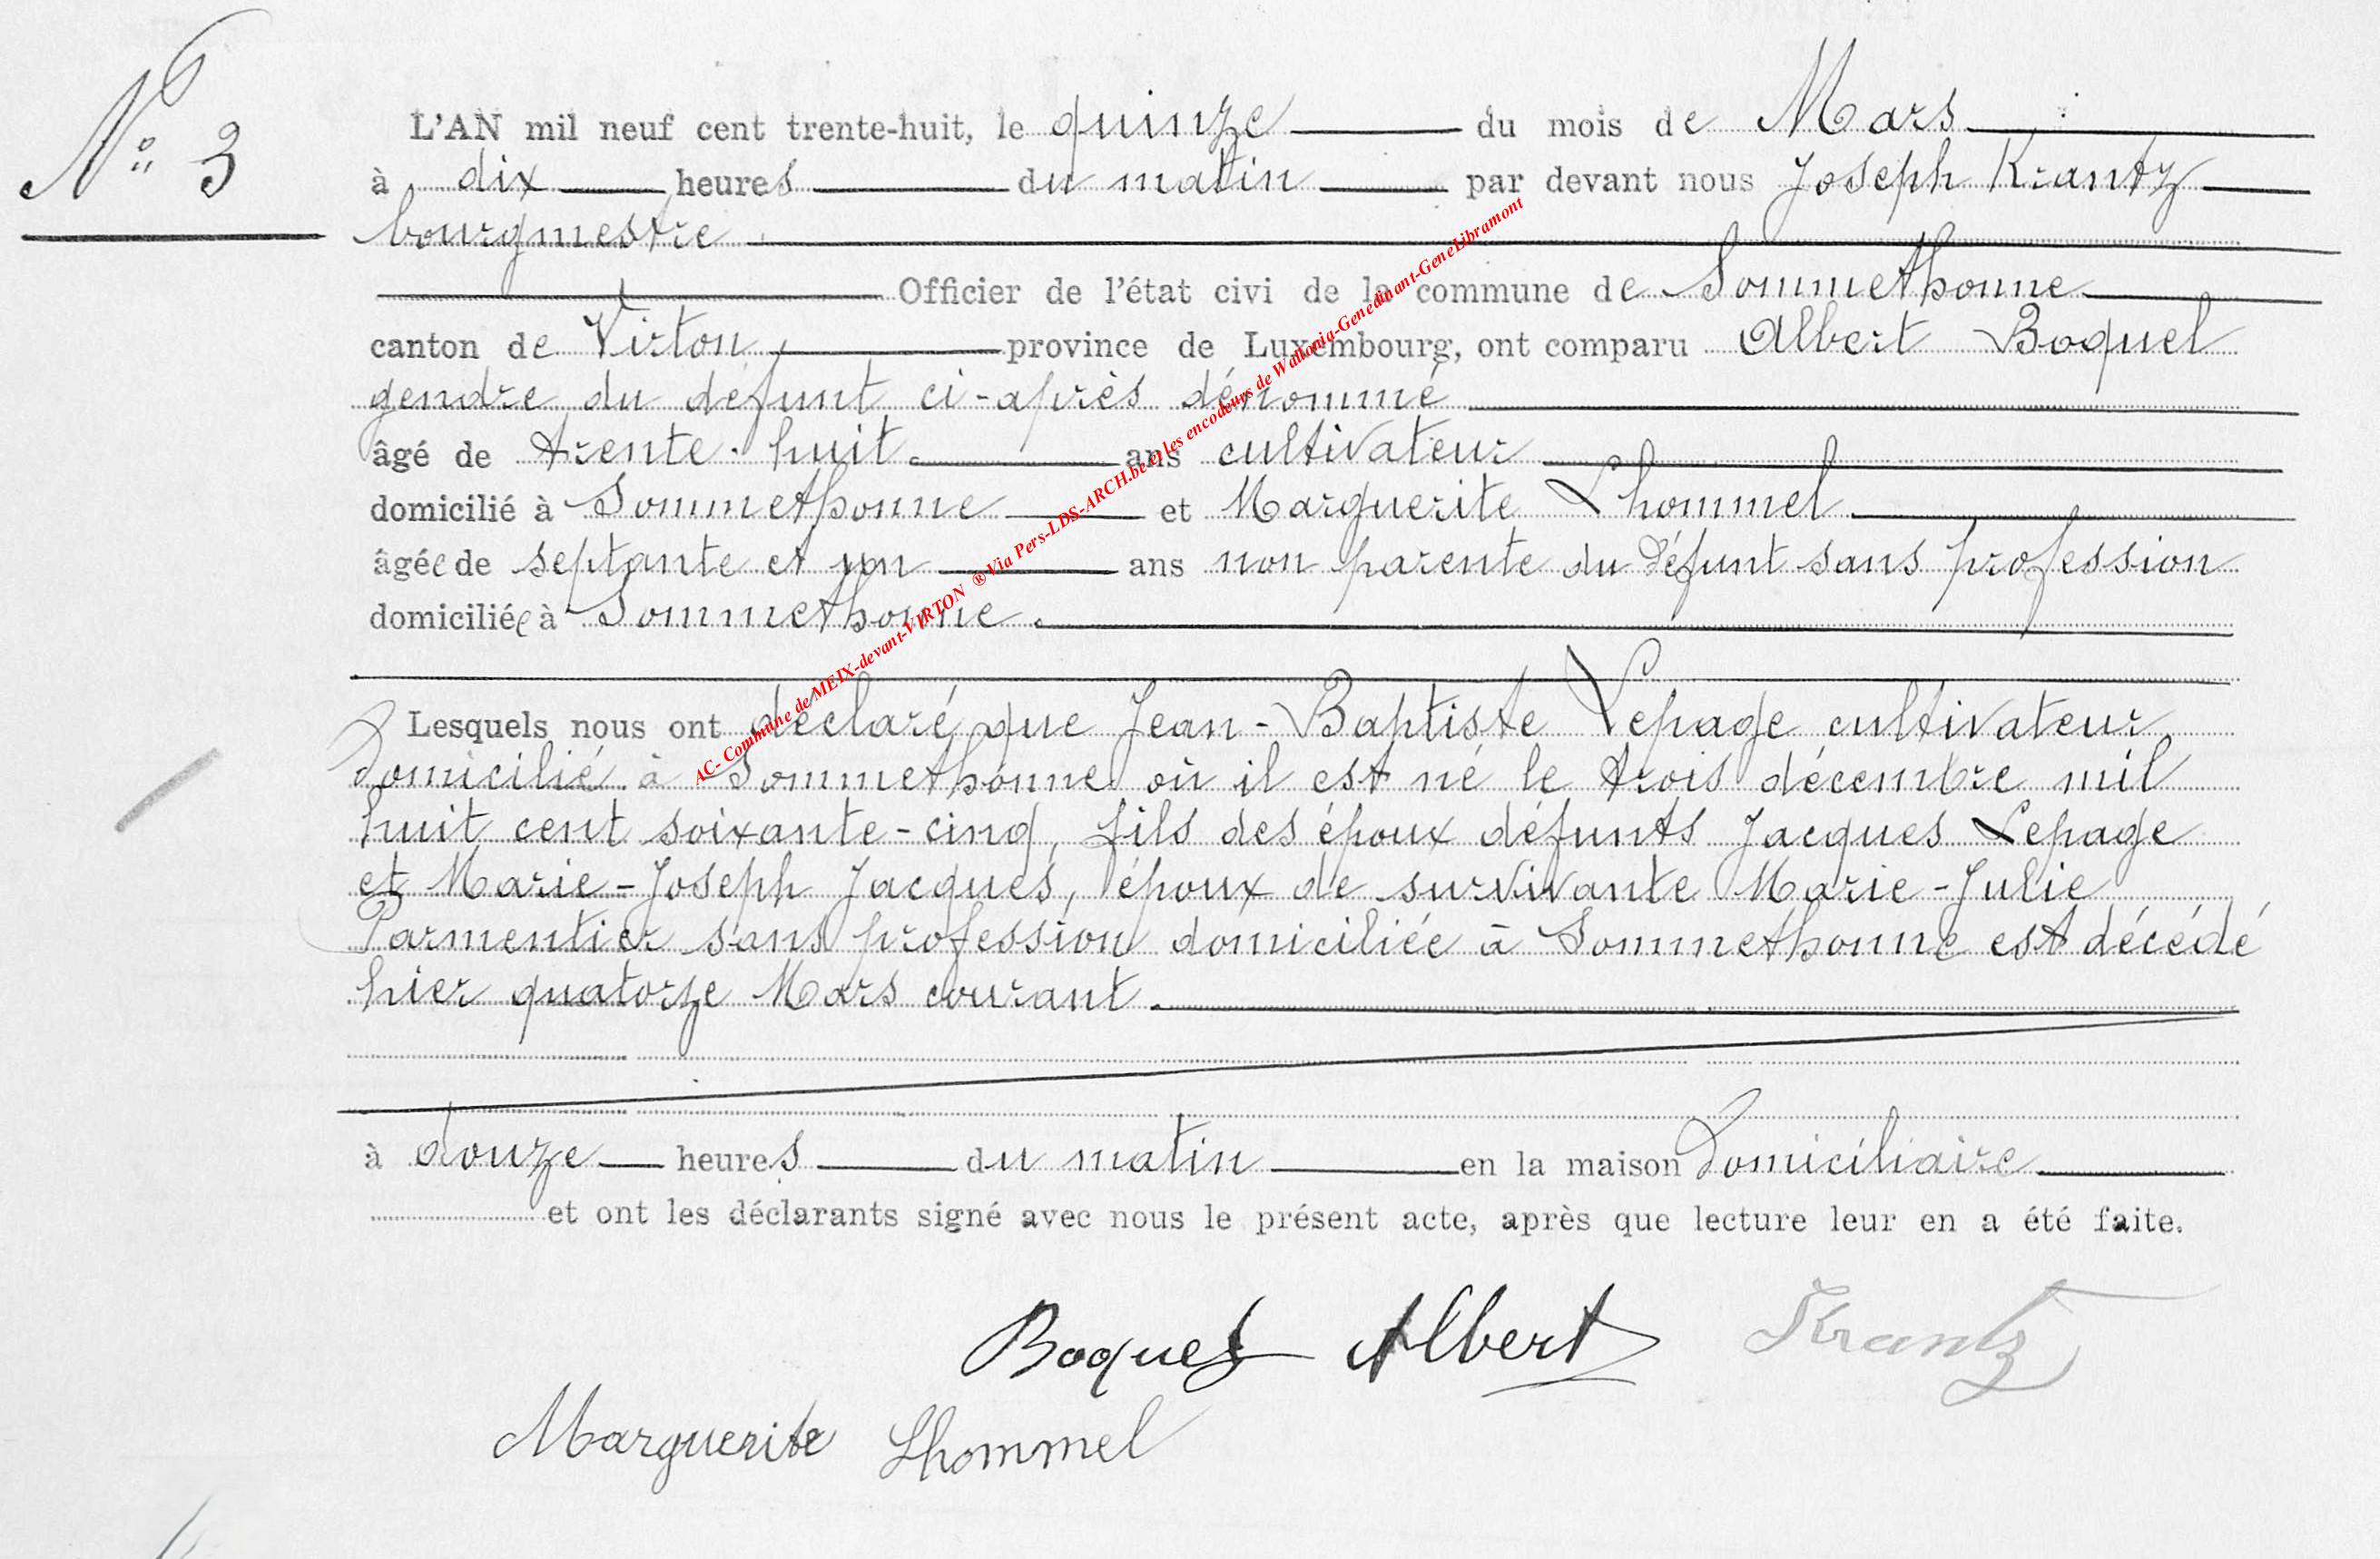 N° 3
L'AN mil neuf cent trente-huit, le quinze du mois de Mars
à dix heures du matin par devant nous Joseph Krantz
bourgmestre
Officier de l'état civi de la commune de Sommethonne
canton de Virton province de Luxembourg, ont comparu Albert Boquel
gendre du défunt ci-après dénommé
âgé de trente-huit ans cultivateur
domicilié à Sommethonne et Marguerite Lhommel
âgée de septante et un ans non parente du défunt sans profession
domiciliée à Sommethonne.
Lesquels nous ont déclaré que Jean-Baptiste Lepage cultivateur
domicilié à Sommethonne où il est né le trois décembre mil
huit cent soixante-cinq, fils des époux défunts Jacques Lepage
et Marie-Joseph Jacques, époux de survivante Marie-Julie
Parmentier sans profession domiciliée à Sommethonne est décédé
hier quatorze Mars courant.
à douze heures du matin en la maison domiciliaire
et ont les déclarants signé avec nous le présent acte, après que lecture leur en a été faite.
Boquel Albert Krantz
Marguerite Lhommel
AC- Commune de MEIX-devant-VIRTON ® Via Pers-LDS-ARCH.be et les encodeurs de Wallonia-Genedinant-GeneLibramont